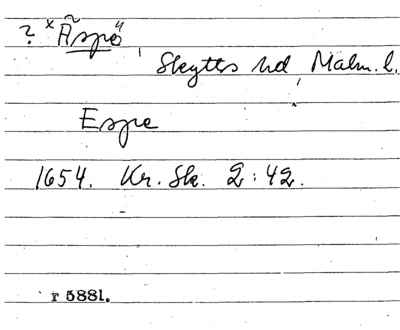 ? × Äspö,
Skytts hd, Malm. l.
Espe
1654. Kr. Sk. 2:42.
r 5881.